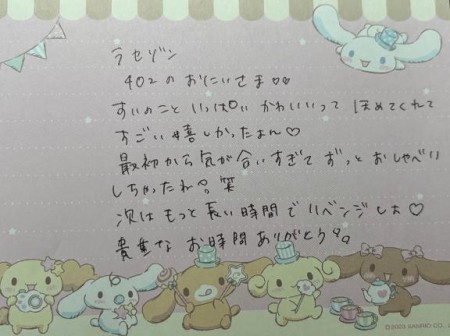 ラセゾン
402のおにいさま♡♡
すいのこといっぱいかわいいって ほめてくれて
すごい嬉しかったよん♡
最初から気が合いすぎてずっとおしゃべり
しちゃったね 笑
次はもっと長い時間でリベンジしよ♡
貴重なお時間ありがとう
© 2023 SANRIO CO., L